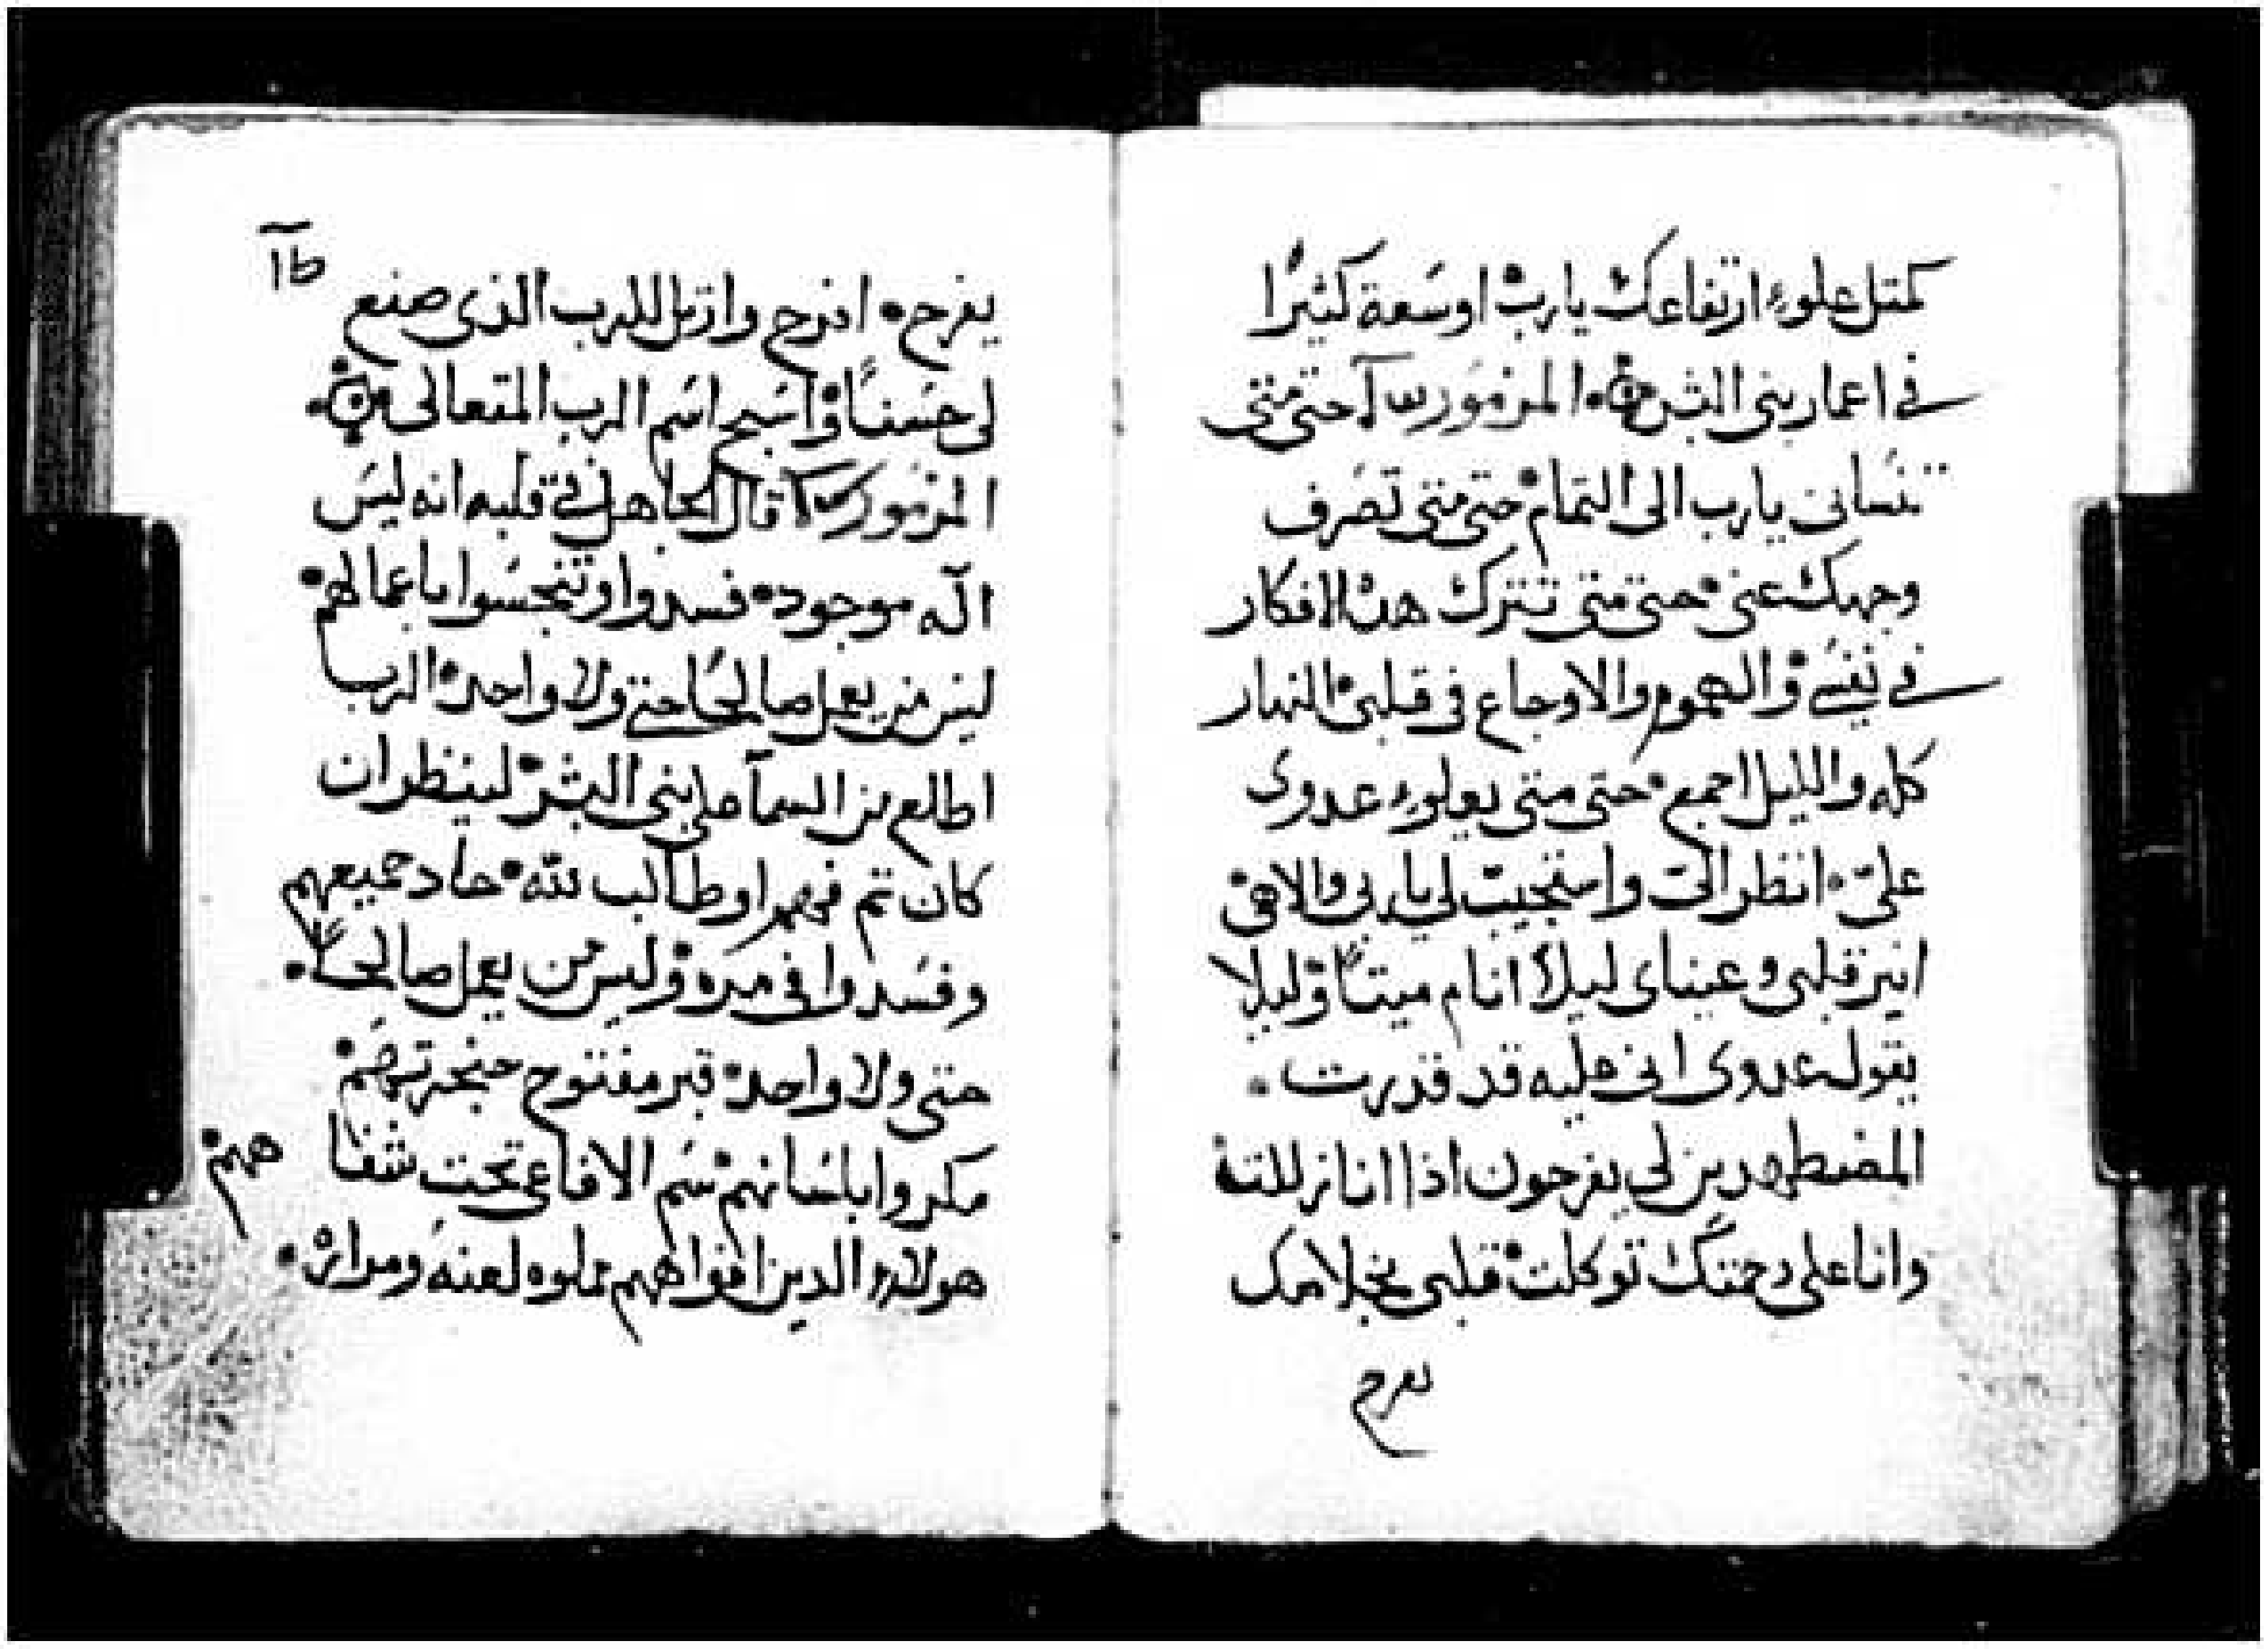 كمتل علوء ارتفاعك يارب اوسعة كثيرًا
في اعمار بنى البشر المزمور حتى متى
تنسانى يارب الى التمام حتى متى تصرف
وجهك عنى حتى متى تترك هذه الافكار
في نفسى والهموم والاوجاع فى قلبى النهار
كله والليل اجمع حتى متى يعلوء عدوى
علىّ انظر الىّ واستجيب لي ياربى والاهى
انير قلبى وعيناى ليلا انام ميتًا وليلا
يقول عدوى انى عليه قد قدرت
المضطهدين لي يفرحون اذا انا زللت
وانا على رحمتك توكلت قلبى بخلاصك
يفرح
يفرح افرح وارتل للرب الذى صنع
لى حسنًا واسبح اسم الرب المتعالى
المزمور قال الجاهل في قلبه انه ليس
اله موجود فسدوا وتنجسوا باعمالهم
ليس من يعمل صالحًا حتى ولا واحد الرب
اطلع من السمآ على بنى البشر لينظر ان
كان تم فهم اوطالب لله حاد جميعهم
وفسدوا فى مره وليس من يعمل صالحًا
حتى ولا واحد قبر مفتوح حنجرتهم
مكروا بلسانهم سم الافاعى تحت شفا
ههم
هولاء الدين افواههم مملوه لعنه ومراره